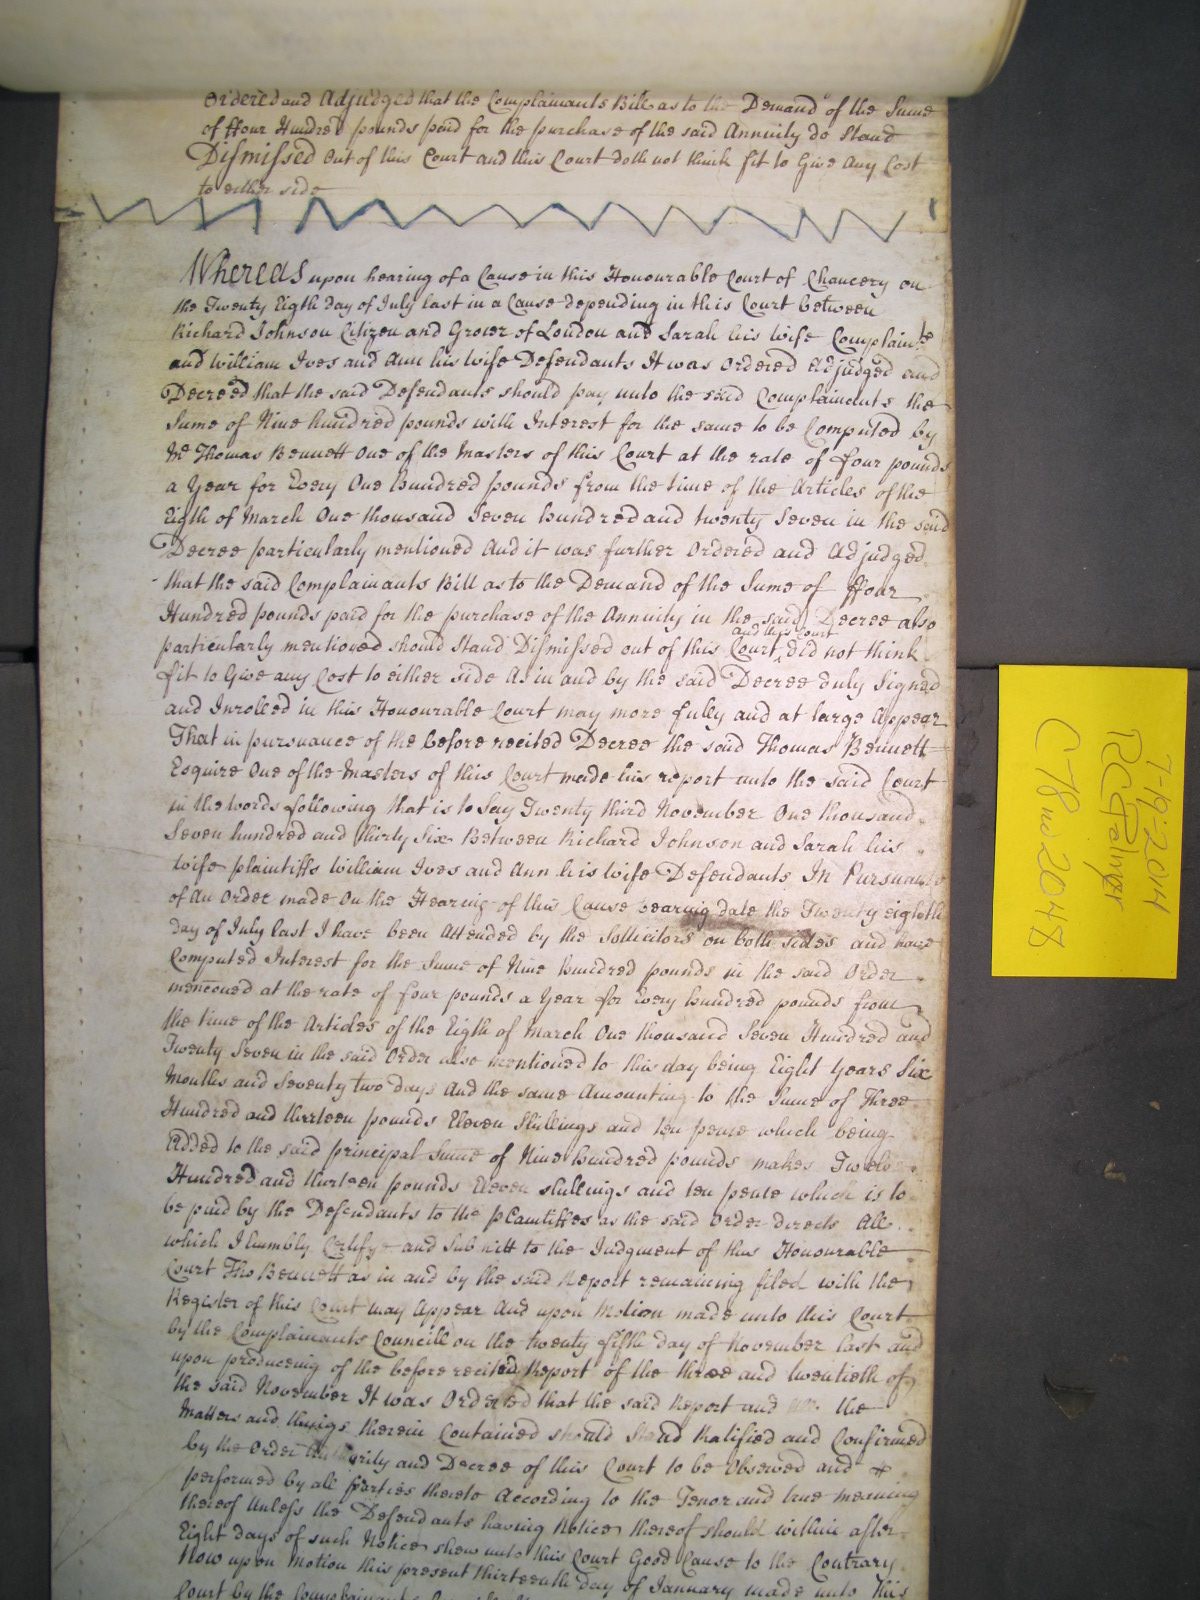 Ordered and Adjudged that the Complainants Bill as to the Demand of the Sume
of ffour Hundred pounds paid for the purchase of the said Annuity do Stand
Dismissed out of this Court and this Court doth not think fit to Give any Cost
to either side
Whereas upon hearing of a Cause in this Honourable Court of Chancery on
the Twenty Eigth day of July last in a Cause depending in this Court between
Richard Johnson Citizen and Grocer of London and Sarah his wife Complain.ts
and William Ives and Ann his wife Defendants It was Ordered Adjudged and
Decreed that the said Defendants should pay unto the said Complainants the
Sume of Nine hundred pounds with Interest for the same to be Computed by
Mr Thomas Bennett One of the Masters of this Court at the rate of four pounds
a Year for Every One hundred pounds from the time of the Articles of the
Eigth of March One thousand Seven hundred and twenty Seven in the said
Decree particularly mentioned And it was further Ordered and Adjudged
that the said Complainants Bill as to the Demand of the Sume of ffour
Hundred pounds paid for the purchase of the Annuity in the said Decree also
and this Court
particularly mentioned should Stand Dismissed out of this Court ^ did not think
fit to Give any Cost to either side As in and by the said Decree duly Signed
and Inrolled in this Honourable Court may more fully and at large Appear
That in pursuance of the before recited Decree the said Thomas Bennett
Esquire One of the Masters of this Court made his report unto the said Court
in the words following that is to say Twenty third November One thousand
Seven hundred and thirty Six Between Richard Johnson and Sarah his
wife plaintiffs William Ives and Ann his wife Defendants In Pursuance
of An Order made On the Hearing of this Cause bearing date the Twenty eighth
day of July last I have been Attended by the Sollicitors on both sides and have
Computed Interest for the Sume of Nine hundred pounds in the said Order
menconed at the rate of four pounds a Year for Every hundred pounds from
the time of the Articles of the Eigth of March One thousand Seven Hundred and
Twenty Seven in the said Order also mentioned to this day being Eight Years Six
Months and Seventy two days And the same Amounting to the Sume of Three
Hundred and thirteen pounds Eleven Shillings and ten pence which being
Added to the said principal Sume of Nine hundred pounds makes Twelve
Hundred and thirteen pounds Eleven shillings and ten pence which is to
be paid by the Defendants to the plaintiffes as the said Order directs All
which I humbly Certifye and Submitt to the Judgment of this Honourable
Court Tho Bennett as in and by the said Report remaining filed with the
Register of this Court may Appear And upon Motion made unto this Court
by the Complainants Councill on the twenty fifth day of November last and
upon produceing of the before recited Report of the three and twentieth of
the said November It was Ordered that the said Report and all the
Matters and things therein Contained should Stand Ratified and Confirmed
by the Order Authority and Decree of this Court to be Observed and
performed by all parties thereto According to the Tenor and true meaning
thereof Unless the Defendants having Notice thereof should within after
Eight days of such Notice shew unto this Court Good Cause to the Contrary
Now upon Motion this present thirteenth day of January made unto this
Court by the Complainants
7-19-2011
RCPalmer
C78no2048